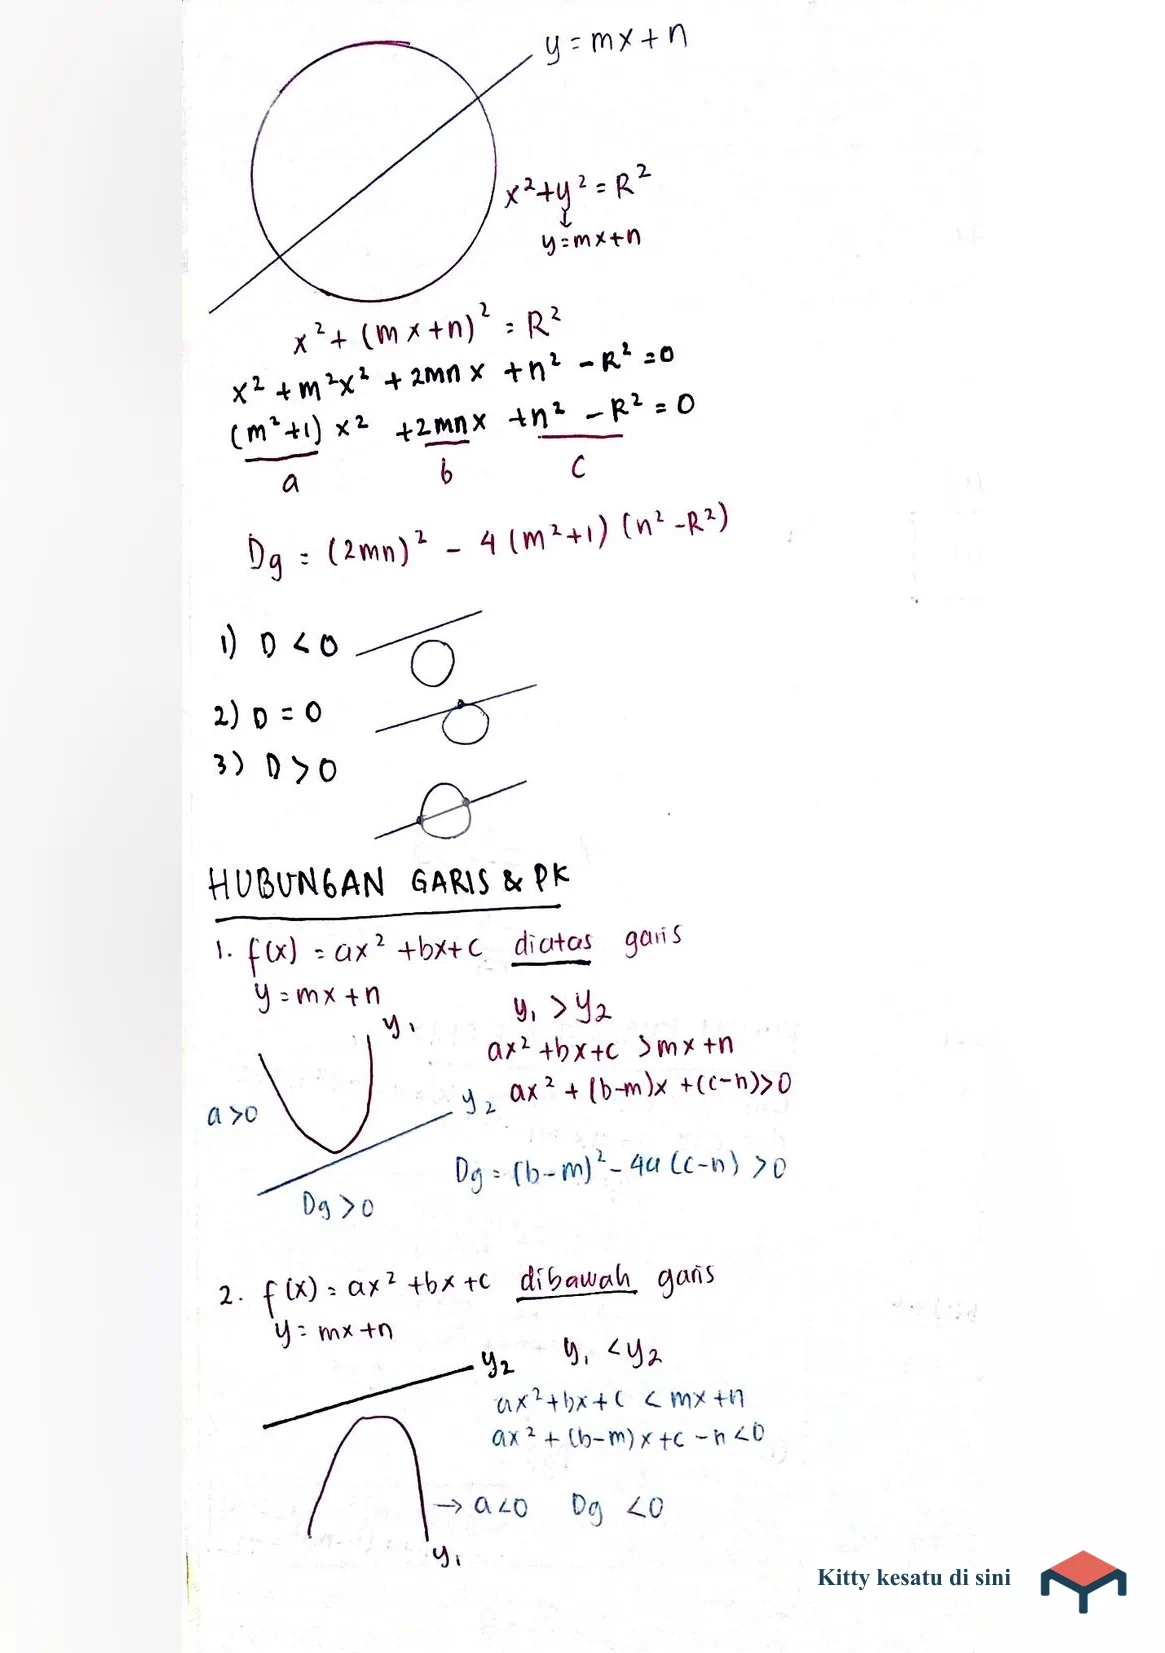 y = mx + n
x² + y² = R²
↓
y = mx + n
x² + (mx + n)² = R²
x² + m²x² + 2mnx + n² - R² = 0
(m² + 1) x² + 2mnx + n² - R² = 0
a b c
Dg = (2mn)² - 4 (m² + 1) (n² - R²)
1) D < 0
2) D = 0
3) D > 0
HUBUNGAN GARIS & PK
1. f(x) = ax² + bx + c diatas garis
y = mx + n
y₁
y₁ > y₂
ax² + bx + c > mx + n
y₂ ax² + (b-m)x + (c-n) > 0
a > 0
Dg = (b-m)² - 4a (c-n) > 0
Dg > 0
2. f(x) = ax² + bx + c dibawah garis
y = mx + n
y₂ y₁ < y₂
ax² + bx + c < mx + n
ax² + (b-m) x + c - n < 0
→ a < 0 Dg < 0
y₁
Kitty kesatu di sini